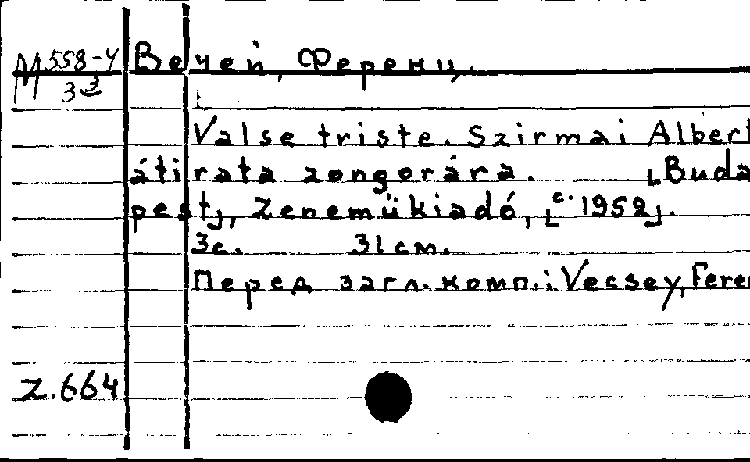 М 558-4 Вечей, Ференц.
3
Valse triste. Szirmai Albert
átirata zongorára. [Buda
pest], Zeneműkiadó, [с. 1952].
3с. 31 см.
Перед загл. комп.: Vecsey, Feren
Z.664